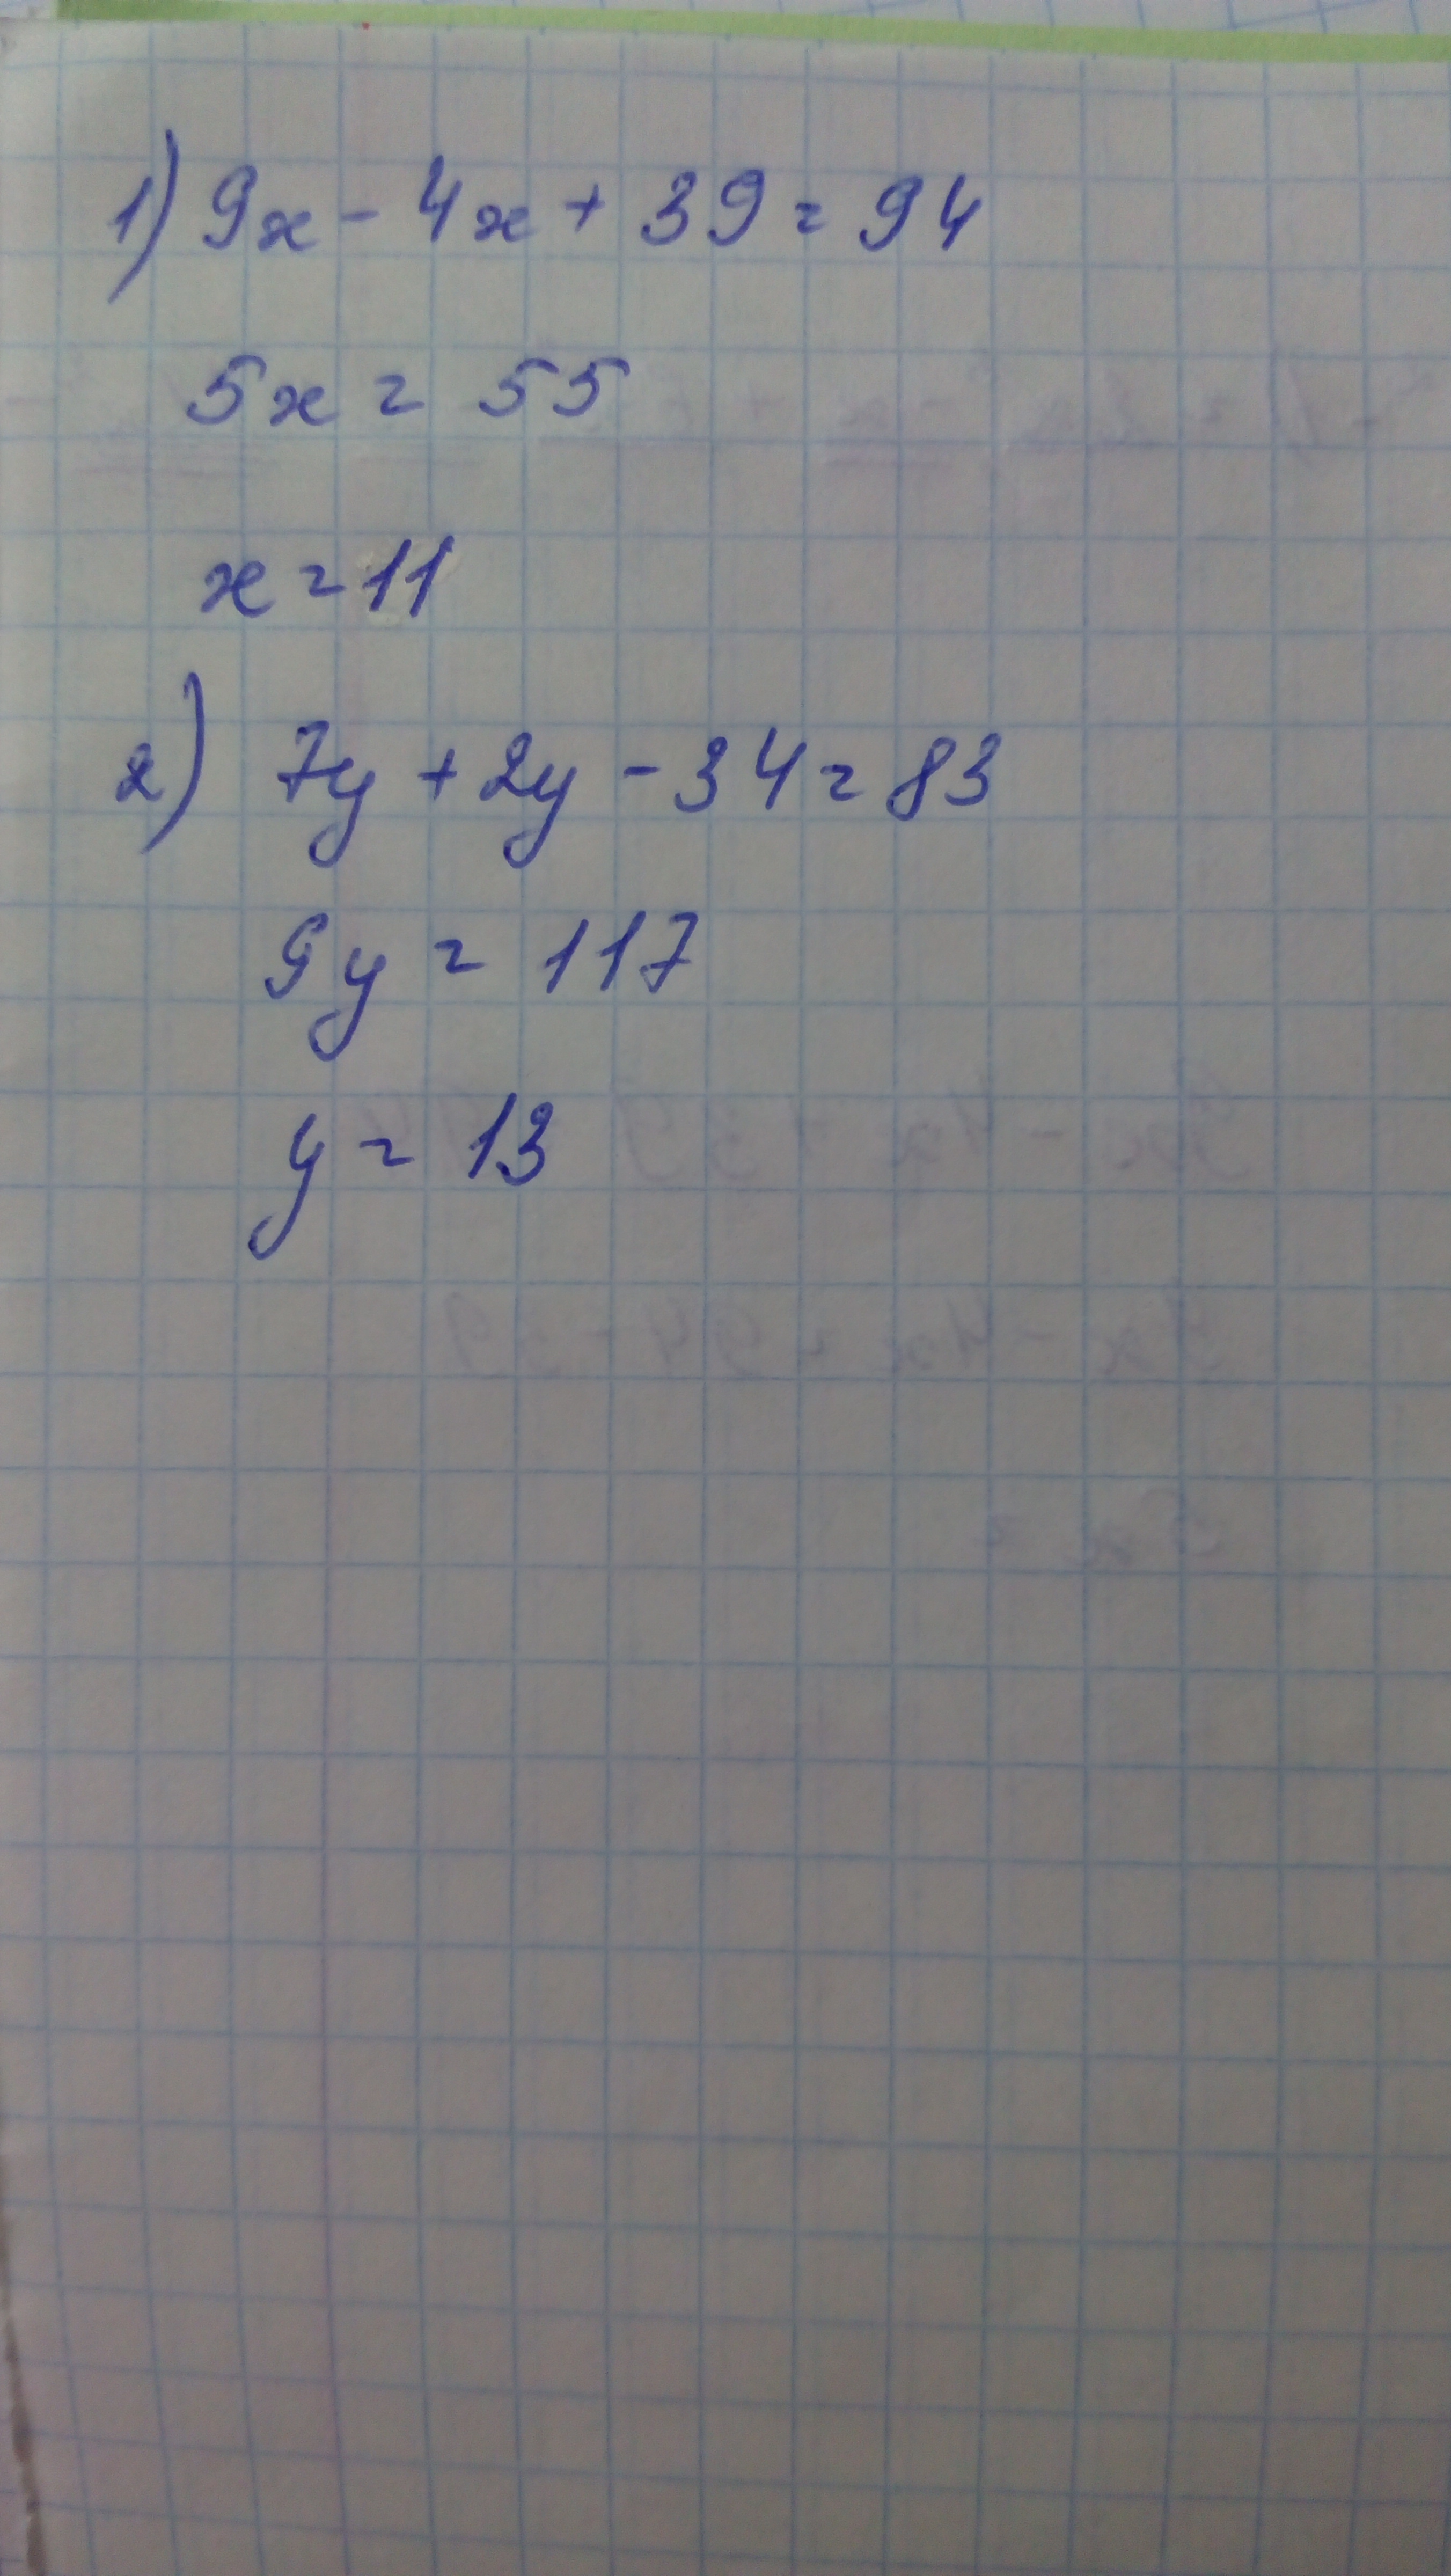 1) 9x - 4x + 39 = 94
5x = 55
x = 11
2) 7y + 2y - 34 = 83
9y = 117
y = 13